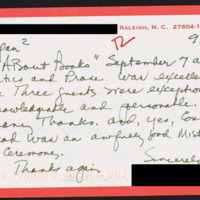 RALEIGH, N. C. 27604-1
9
"About Books" September 7 a
tics and Prose was excelle
Three Guests were exception
owledgeable and personable.
any Thanks. And, yes, Con
ad was an awfully good Mist
Ceremony.
Thanks again
Sincerel